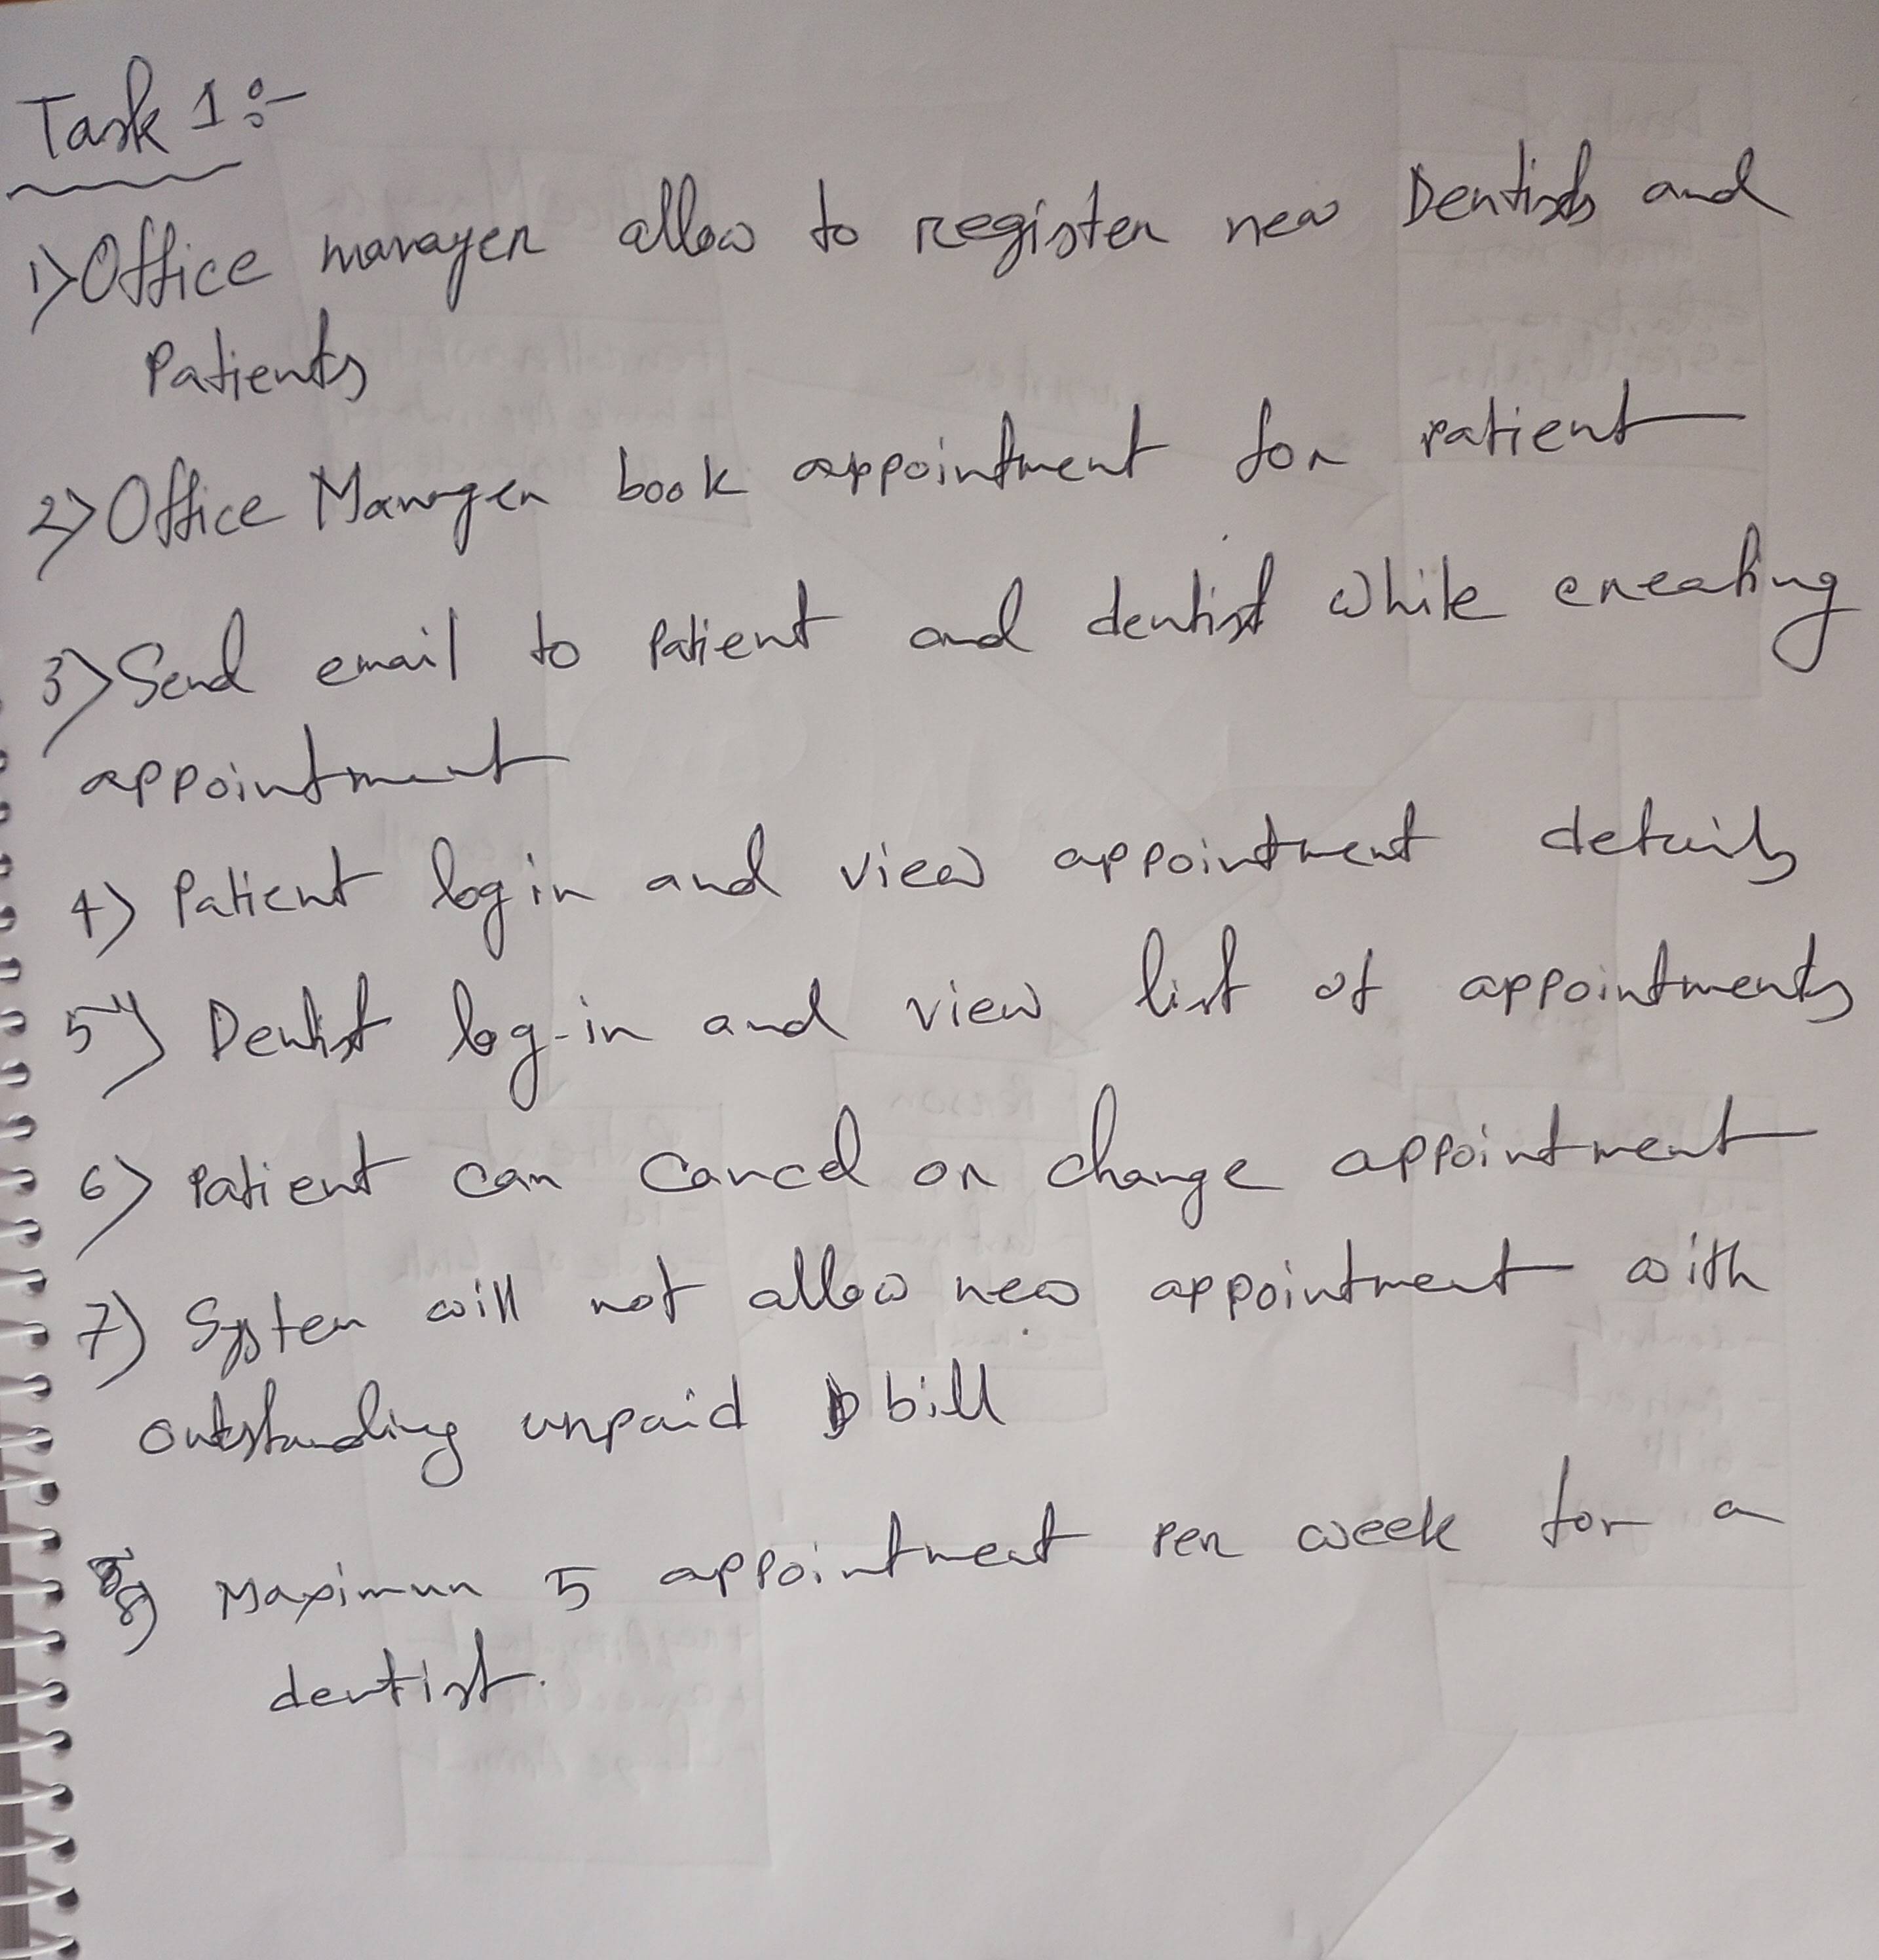 Task 1:-
1) Office manager allow to register new Dentists and
Patients
2) Office Manager book appointment for patient
3) Send email to Patient and dentist while creating
appointment
4) Patient log in and view appointment details
5) Dentist log-in and view list of appointments
6) Patient can cancel or change appointment
7) System will not allow new appointment with
outstanding unpaid bill
8) Maximum 5 appointment per week for a
dentist.